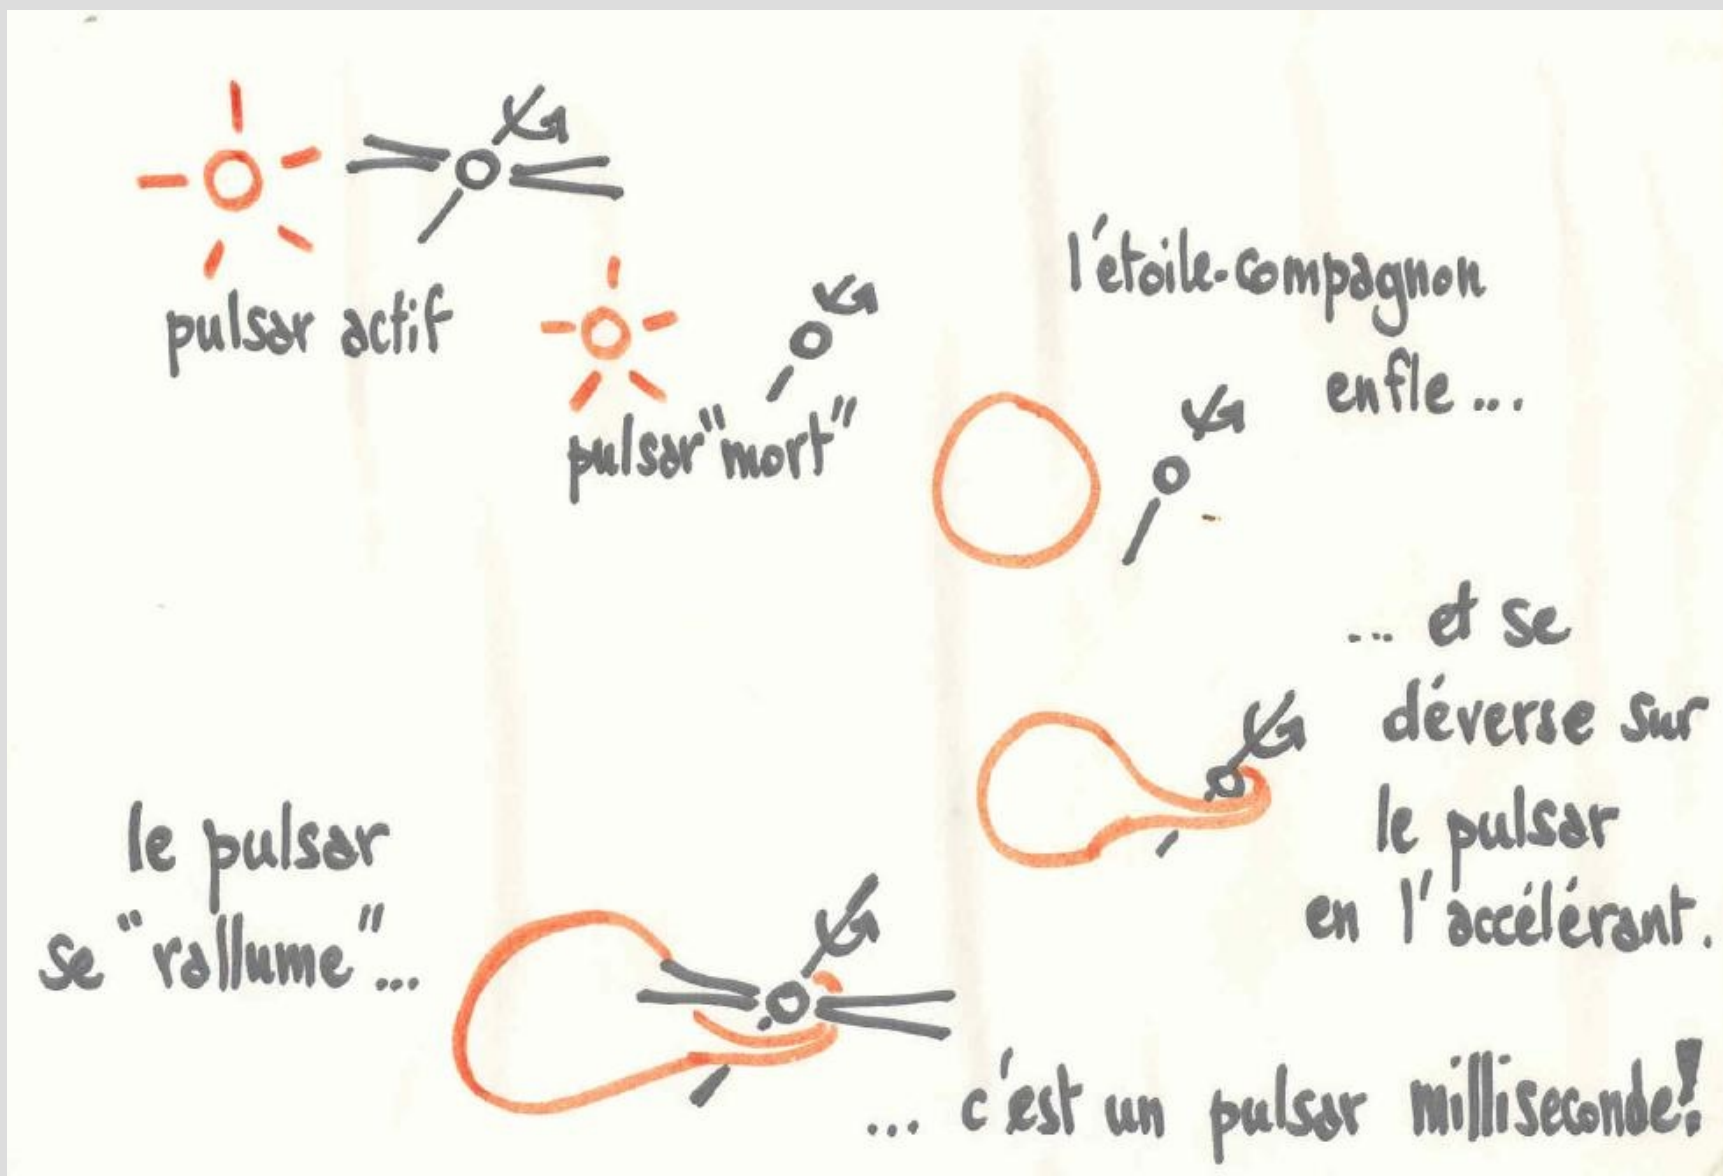 pulsar actif
pulsar "mort"
l'étoile-compagnon
enfle ...
... et se
déverse sur
le pulsar
en l'accélérant.
le pulsar
se "rallume"...
... c'est un pulsar milliseconde!